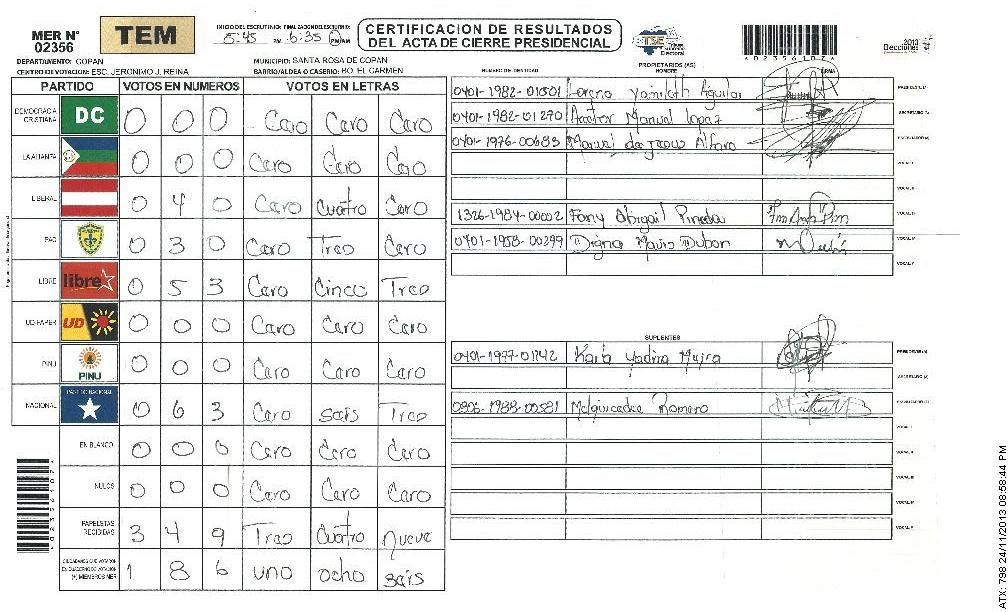 MER N° 02356
TEM
INICIO DEL ESCRUTINIO: FINALIZACION DEL ESCRUTINIO:
5:45 PM 6:35 AM PM
CERTIFICACION DE RESULTADOS
DEL ACTA DE CIERRE PRESIDENCIAL
TSE
Tribunal Supremo Electoral
0235610?4
2013
Elecciones
DEPARTAMENTO: COPAN
MUNICIPIO: SANTA ROSA DE COPAN
CENTRO DE VOTACION: ESC. JERONIMO J. REINA
BARRIO/ALDEA O CASERIO: BO. EL CARMEN
PARTIDO VOTOS EN NUMEROS VOTOS EN LETRAS
DEMOCRACIA CRISTIANA DC 0 0 0 Cero Cero Cero
LA ALIANZA 0 0 0 Cero Cero Cero
LIBERAL 0 4 0 Cero Cuatro Cero
PAC 0 3 0 Cero Tres Cero
LIBRE libre 0 5 3 Cero Cinco Tres
UD-FAPER UD 0 0 0 Cero Cero Cero
PINU PINU 0 0 0 Cero Cero Cero
NACIONAL PARTIDO NACIONAL 0 6 3 Cero seis Tres
EN BLANCO 0 0 0 Cero Cero Cero
NULOS 0 0 0 Cero Cero Cero
PAPELETAS RECIBIDAS 3 4 9 Tres Cuatro nueve
CIUDADANOS QUE VOTARON EN CUADERNO DE VOTACION (+) MIEMBROS MER 1 8 6 uno ocho seis
NUMERO DE IDENTIDAD PROPIETARIOS (AS) NOMBRE FIRMA
0401-1982-01501 Lorena Yamileth Aguilar PRESIDENTE (A)
0401-1982-01290 Hector Manuel Lopez SECRETARIO (A)
0401-1976-00683 Manuel de Jesus Alfaro ESCRUTADOR (A)
VOCAL I
VOCAL II
1326-1984-00002 Fany Abigail Pineda VOCAL III
0401-1958-00299 Digna Mavis Dubon VOCAL IV
VOCAL V
SUPLENTES
0401-1977-01742 Karla Yadira Mejia PRESIDENTE (A)
SECRETARIO (A)
0806-1988-00581 Melquicedec Romero ESCRUTADOR (A)
VOCAL I
VOCAL II
VOCAL III
VOCAL IV
VOCAL V
ATX: 798 24/11/2013 08:58:44 PM